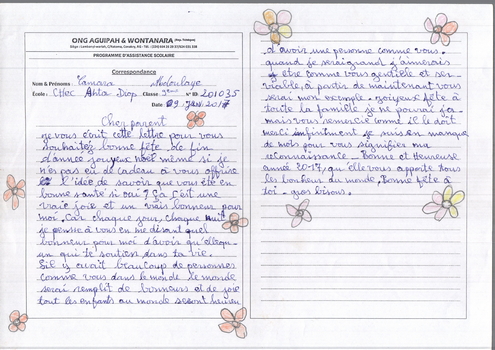 ONG AGUIPAH & WONTANARA (Rep. Tchèque)
PROGRAMME D'ASSISTANCE SCOLAIRE
Correspondance
Nom & Prénoms: Camara Abdoulaye
École: Anta Diop Classe N° ID 201035
Date: 09
Cher parent
je vous écrit cette lettre pour vous
souhaitez bonne fête de fin
d'année joyeux noël même si je
n'es pas eu de cadeau à vous offrire
l'idée de savoir que vous ête en
bonne santé si oui? Oo C'est une
vraie joie et un vrais bonneur pour
moi. Car chaque jour, chaque nuit
je pense à vous en me disant quel
bonneur pour moi d'avoir qu'elleqn
un qui te soutien dans ta vie.
S'il y avait beaucoup de personnes
comme vous dans le monde le monde
serai remplit de bonneurs et de joie
tout les enfants au monde seront
d'avoir une personne comme vous.
quand je serai grand j'aimerais
être comme vous gentille et ser
viable, à partir de maintenant vous
serai mon exemple. joyeux fête à
toute la famille je ne pouvais
mais vous remercie comme il le doit
merci infiniment je suis en manque
de mots pour vous signifier ma
reconnaissance - Bonne et Heureuse
année 2017, qu'elle vous apporte tous
les bonheurs du monde. Bonne fête à
toi - gros bisous.